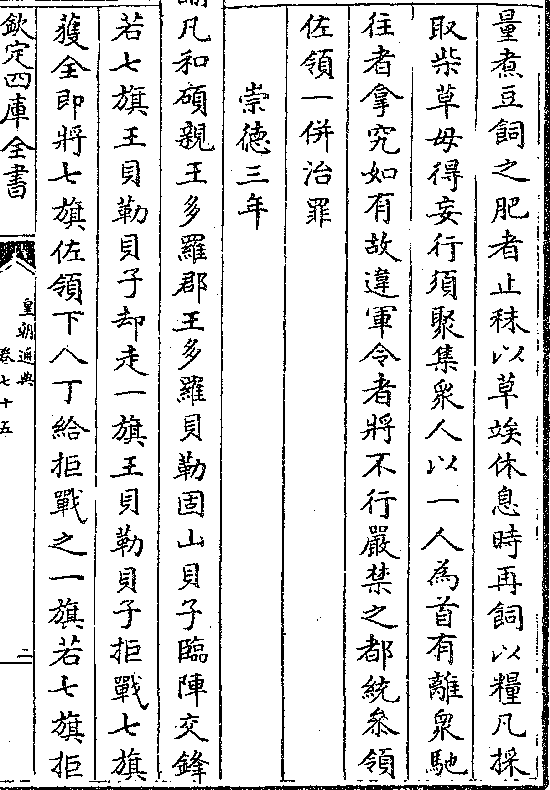 量煮豆飼之肥者止秣以草竢休息時再飼以糧凡採
取柴草毋得妄行須聚集衆人以一人為首有離衆馳
往者拿究如有故違軍令者將不行嚴禁之都統叅領
佐領一併治罪
崇德三年
凡和碩親王多羅郡王多羅貝勒固山貝子臨陣交鋒
若七旗王貝勒貝子却走一旗王貝勒貝子拒戰七旗
獲全即將七旗佐領下人丁給拒戰之一旗若七旗拒
欽定四庫全書
皇朝通典
卷七十五
二